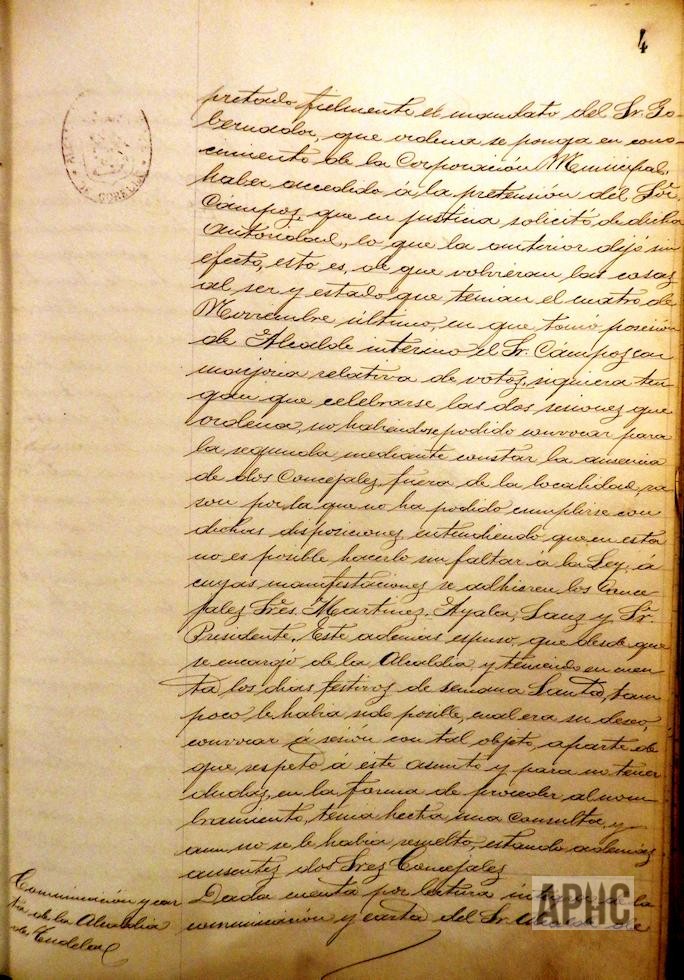 4
pretado fielmente el mandato del Sr. Go-
bernador, que ordena se ponga en cono-
cimiento de la Corporación Municipal,
haber accedido á la pretensión del Sõr.
Campos, que en justicia solicitó de dicha
Autoridad, lo que la anterior dejó sin
efecto, esto es, de que volvieran las cosas
al ser y estado que tenian el cuatro de
Noviembre último, en que tomó posesión
de Alcalde interino el Sr. Cámpos con
mayoria relativa de votos, siquiera ten-
gan que celebrarse las dos sesiones que
ordena, no habiendose podido convocar para
la segunda mediante constar la ausencia
de dos Concejales fuera de la localidad, ra
son por la que no ha podido cumplirse con
dichas disposiciones, entendiendo que en esta
no es posible hacerlo sin faltar á la Ley, á
cuyas manifestaciones se adhieren los Conce-
jales Sres. Martinez, Ayala, Sanz y Sr.
Presidente. Este ademas espuso, que desde que
se encargó de la Alcaldia y teniendo en cuen-
ta los dias festivos de semana Santa, tam
poco le habia sido posible, cual era su deseo,
convocar á sesión con tal objeto, aparte de
que, respeto a este asunto y para no tener
dudas, en la forma de proceder al nom-
bramiento, tenia hecha una consulta, y
aun no se le habia resuelto, estando ademas
ausentes dos Sres Concejales
Comunicación y car
ta de la Alcaldia
de Tudela
Dada cuenta por lectura de la
comunicacion y carta del Sr. de
APHC